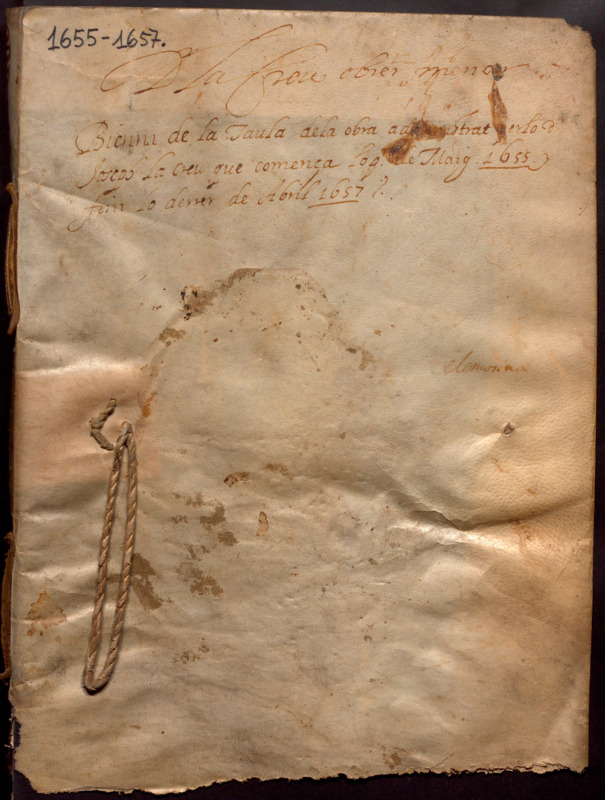 1655-1657.
De la Creu obrer menor
Bienni de la Taula de la obra administrat per lo
la Creu que comença lo p. de Maig. 1655 y
fini lo derrer de Abril 1657
elemosina